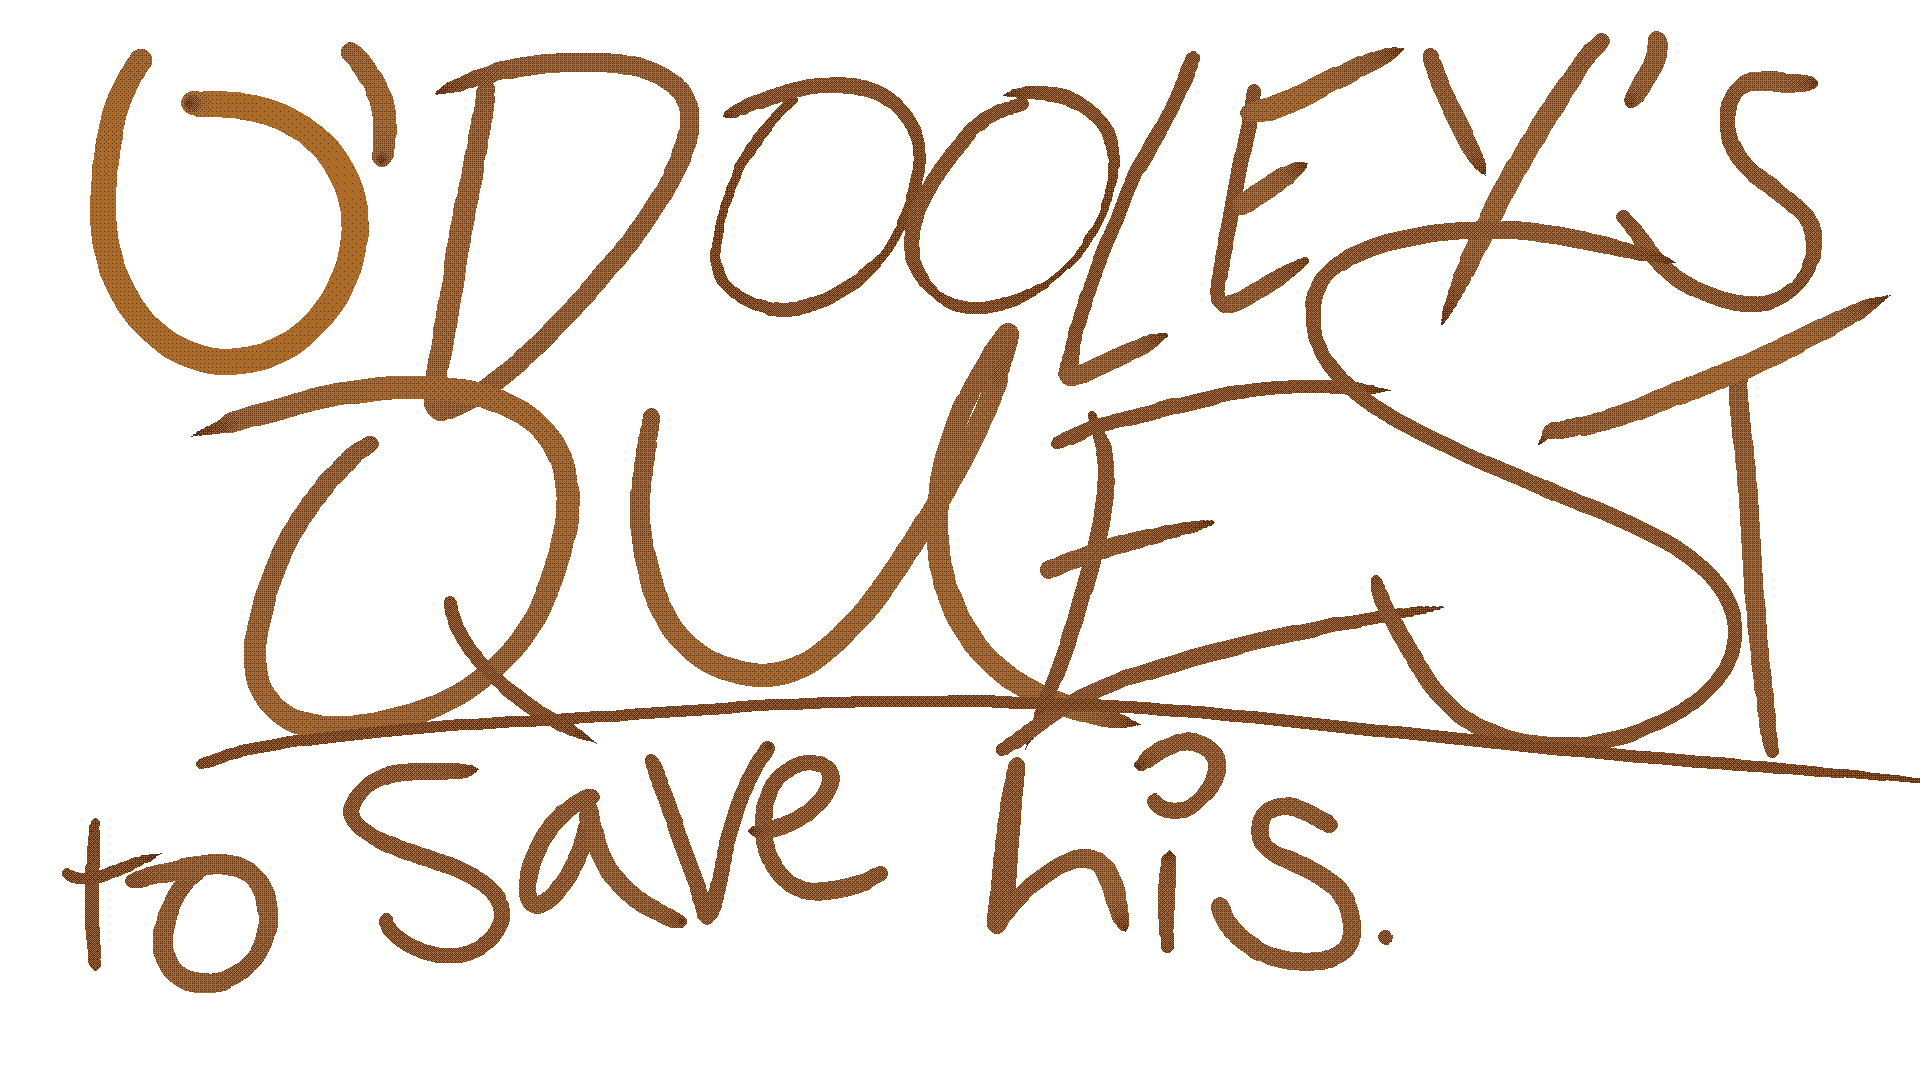 O'DOOLEY'S
QUEST
to save his.